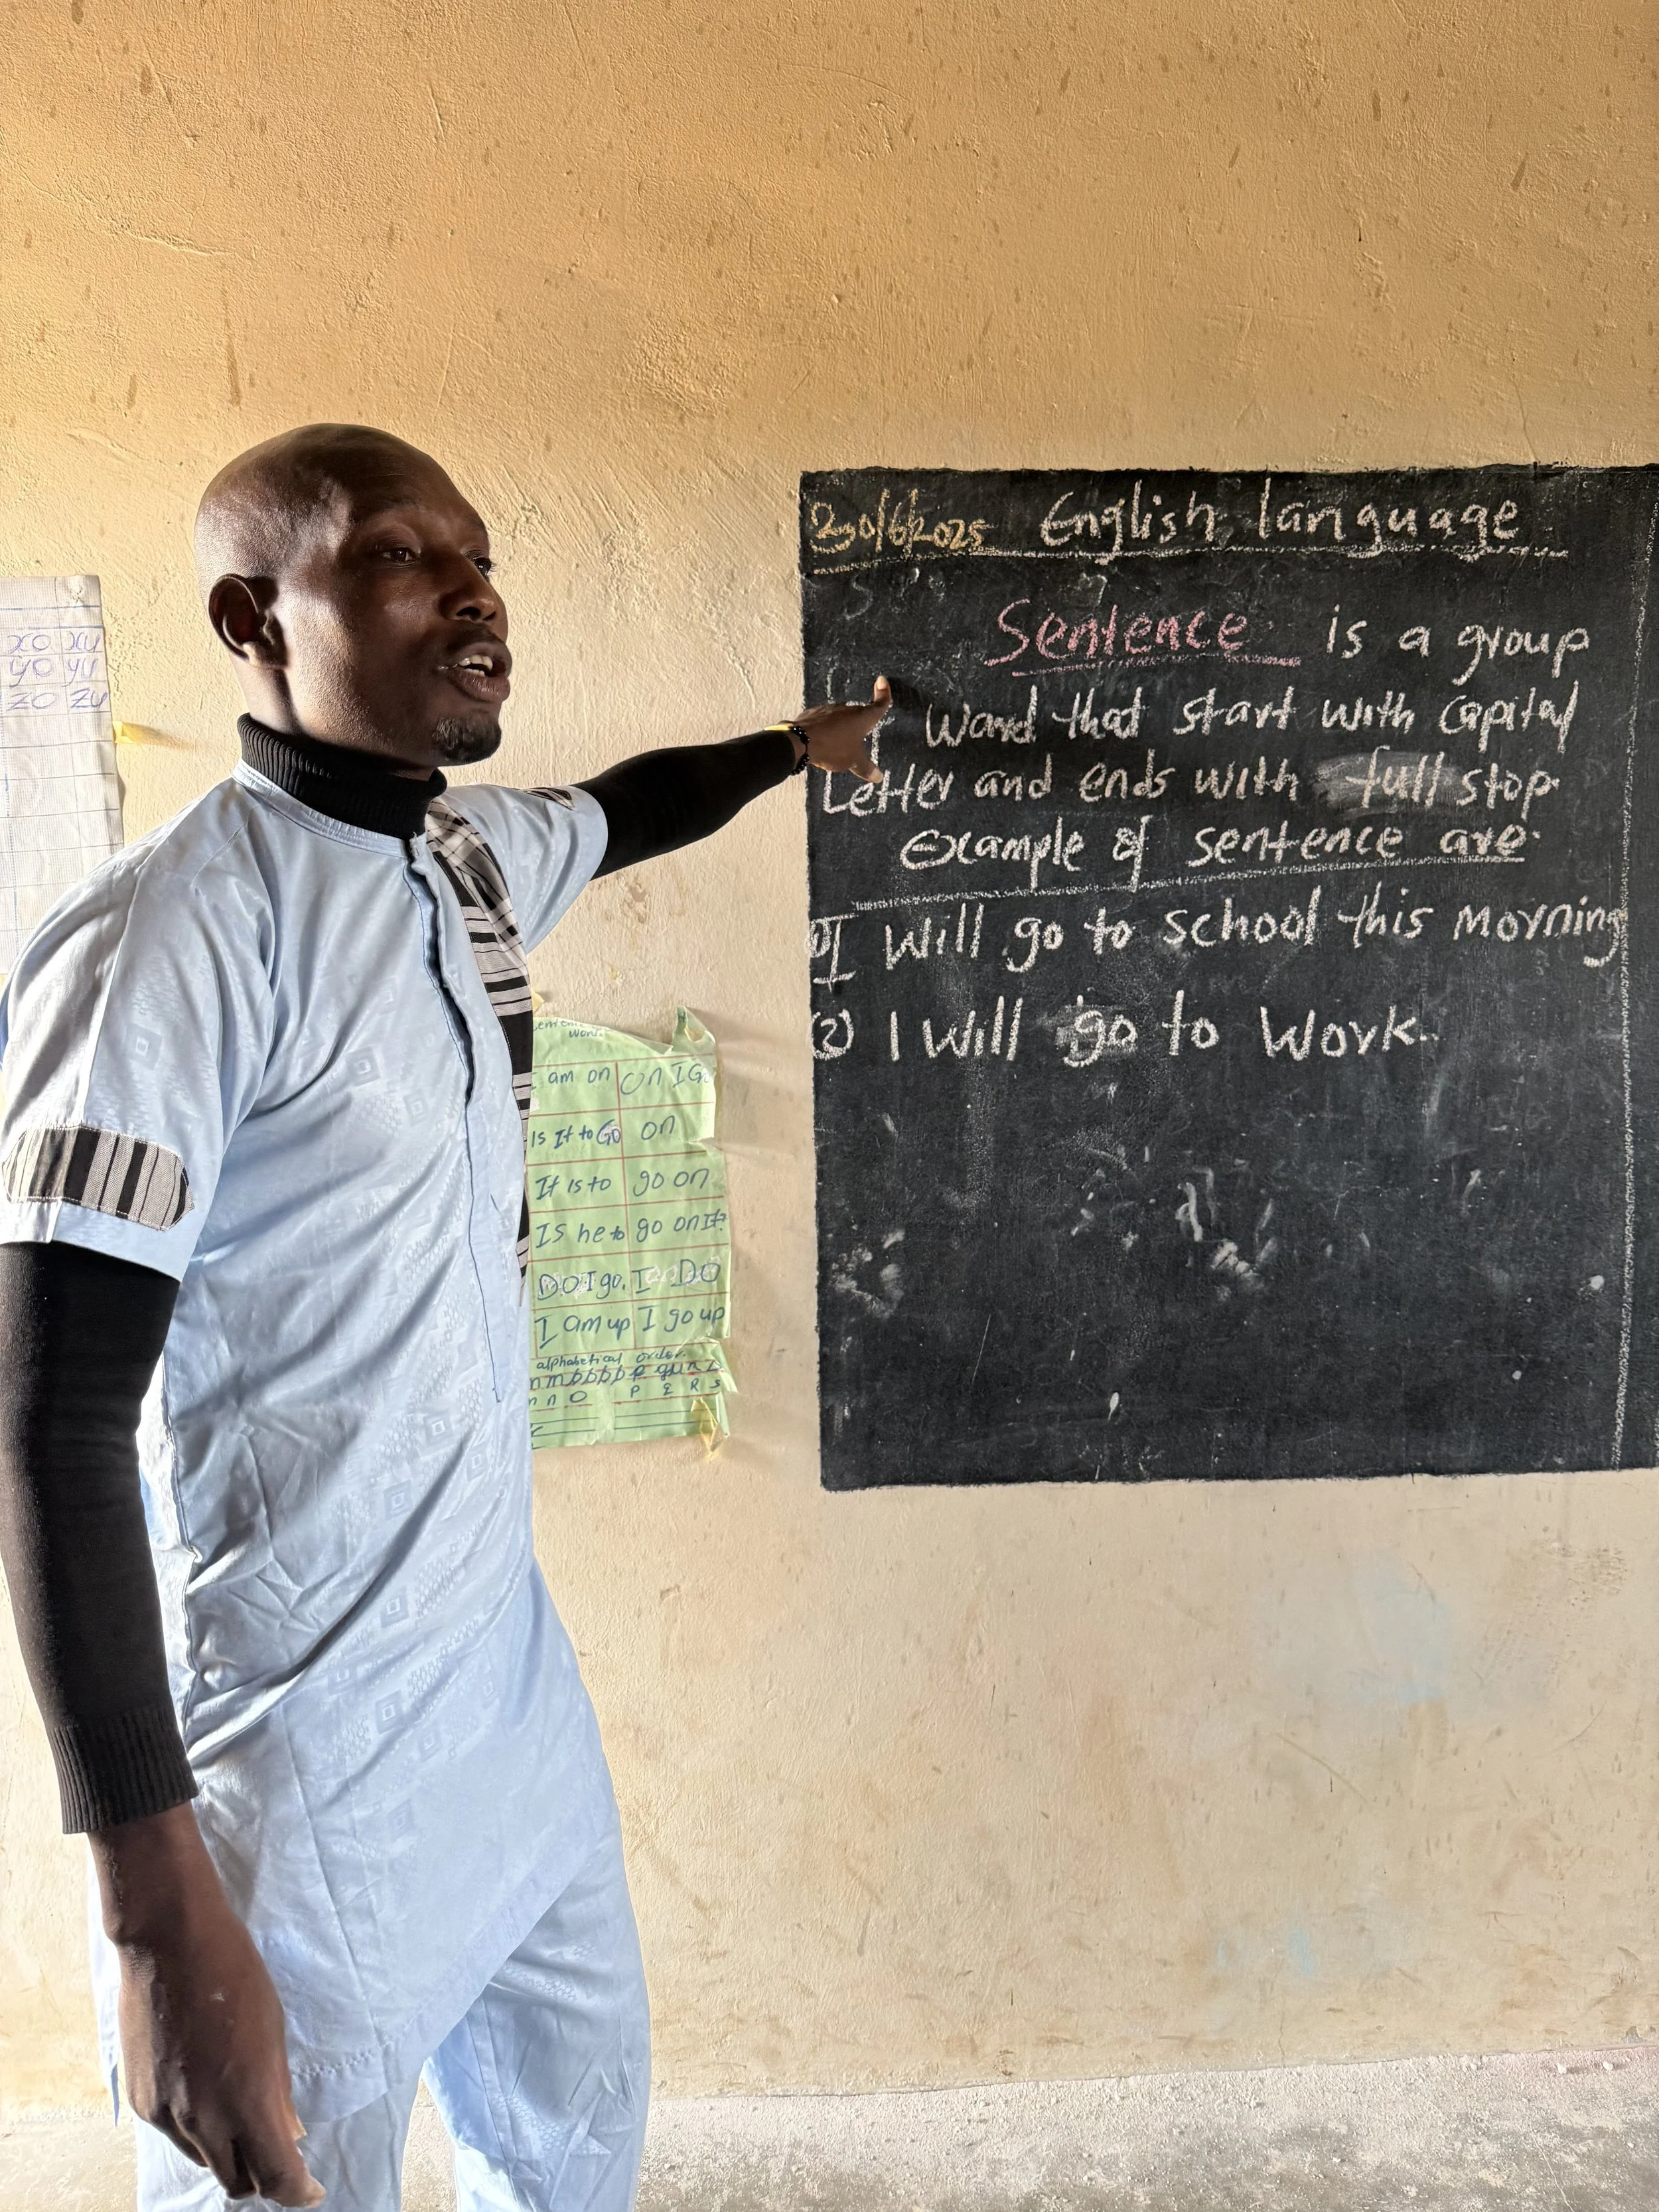 30/6/2025 English language
Sentence is a group
Word that start with capital
Letter and ends with full stop.
Example of sentence are.
I Will go to school this morning
(2) I Will go to Work.
xo xu
yo yu
zo zu
am on On I Go
Is It to Go on
It is to go on
Is he to go on It?
DO I go. I DO
I am up I go up
alphabetical order.
n n O P Q R S